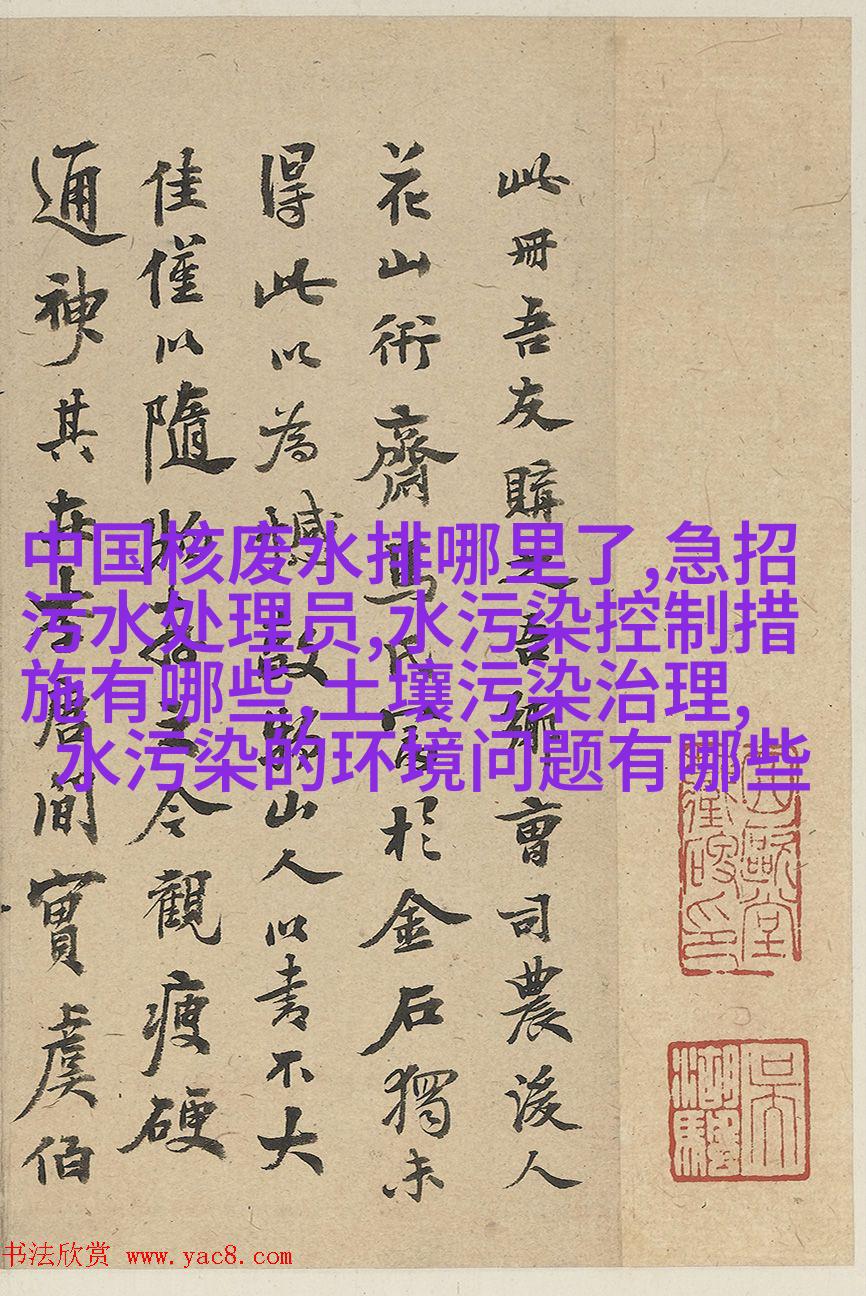 此冊吾友購之吾鄉曹司農後人
花山衍齋馬氏富於金石獨未
得此以為憾啟照山人以書不大
佳僅以隨收者之今觀瘦硬
通神其在古唐間實虞伯
中国核废水排哪里了,急招
污水处理员,水污染控制措
施有哪些,土壤污染治理,
水污染的环境问题有哪些
书法欣赏 www.yac8.com